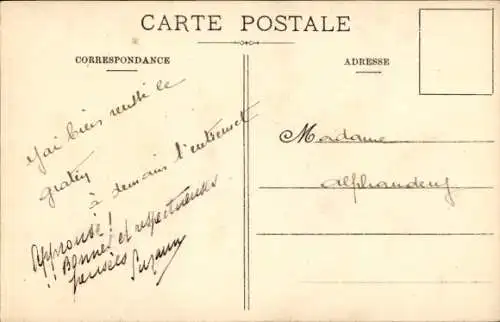 CARTE POSTALE
CORRESPONDANCE
ADRESSE
j'ai bien reussi le
gratin
à demain l'entremet
Approuvé!
!! Bonnes et respectueuses
pensées Suzanne
Madame
Alphandery